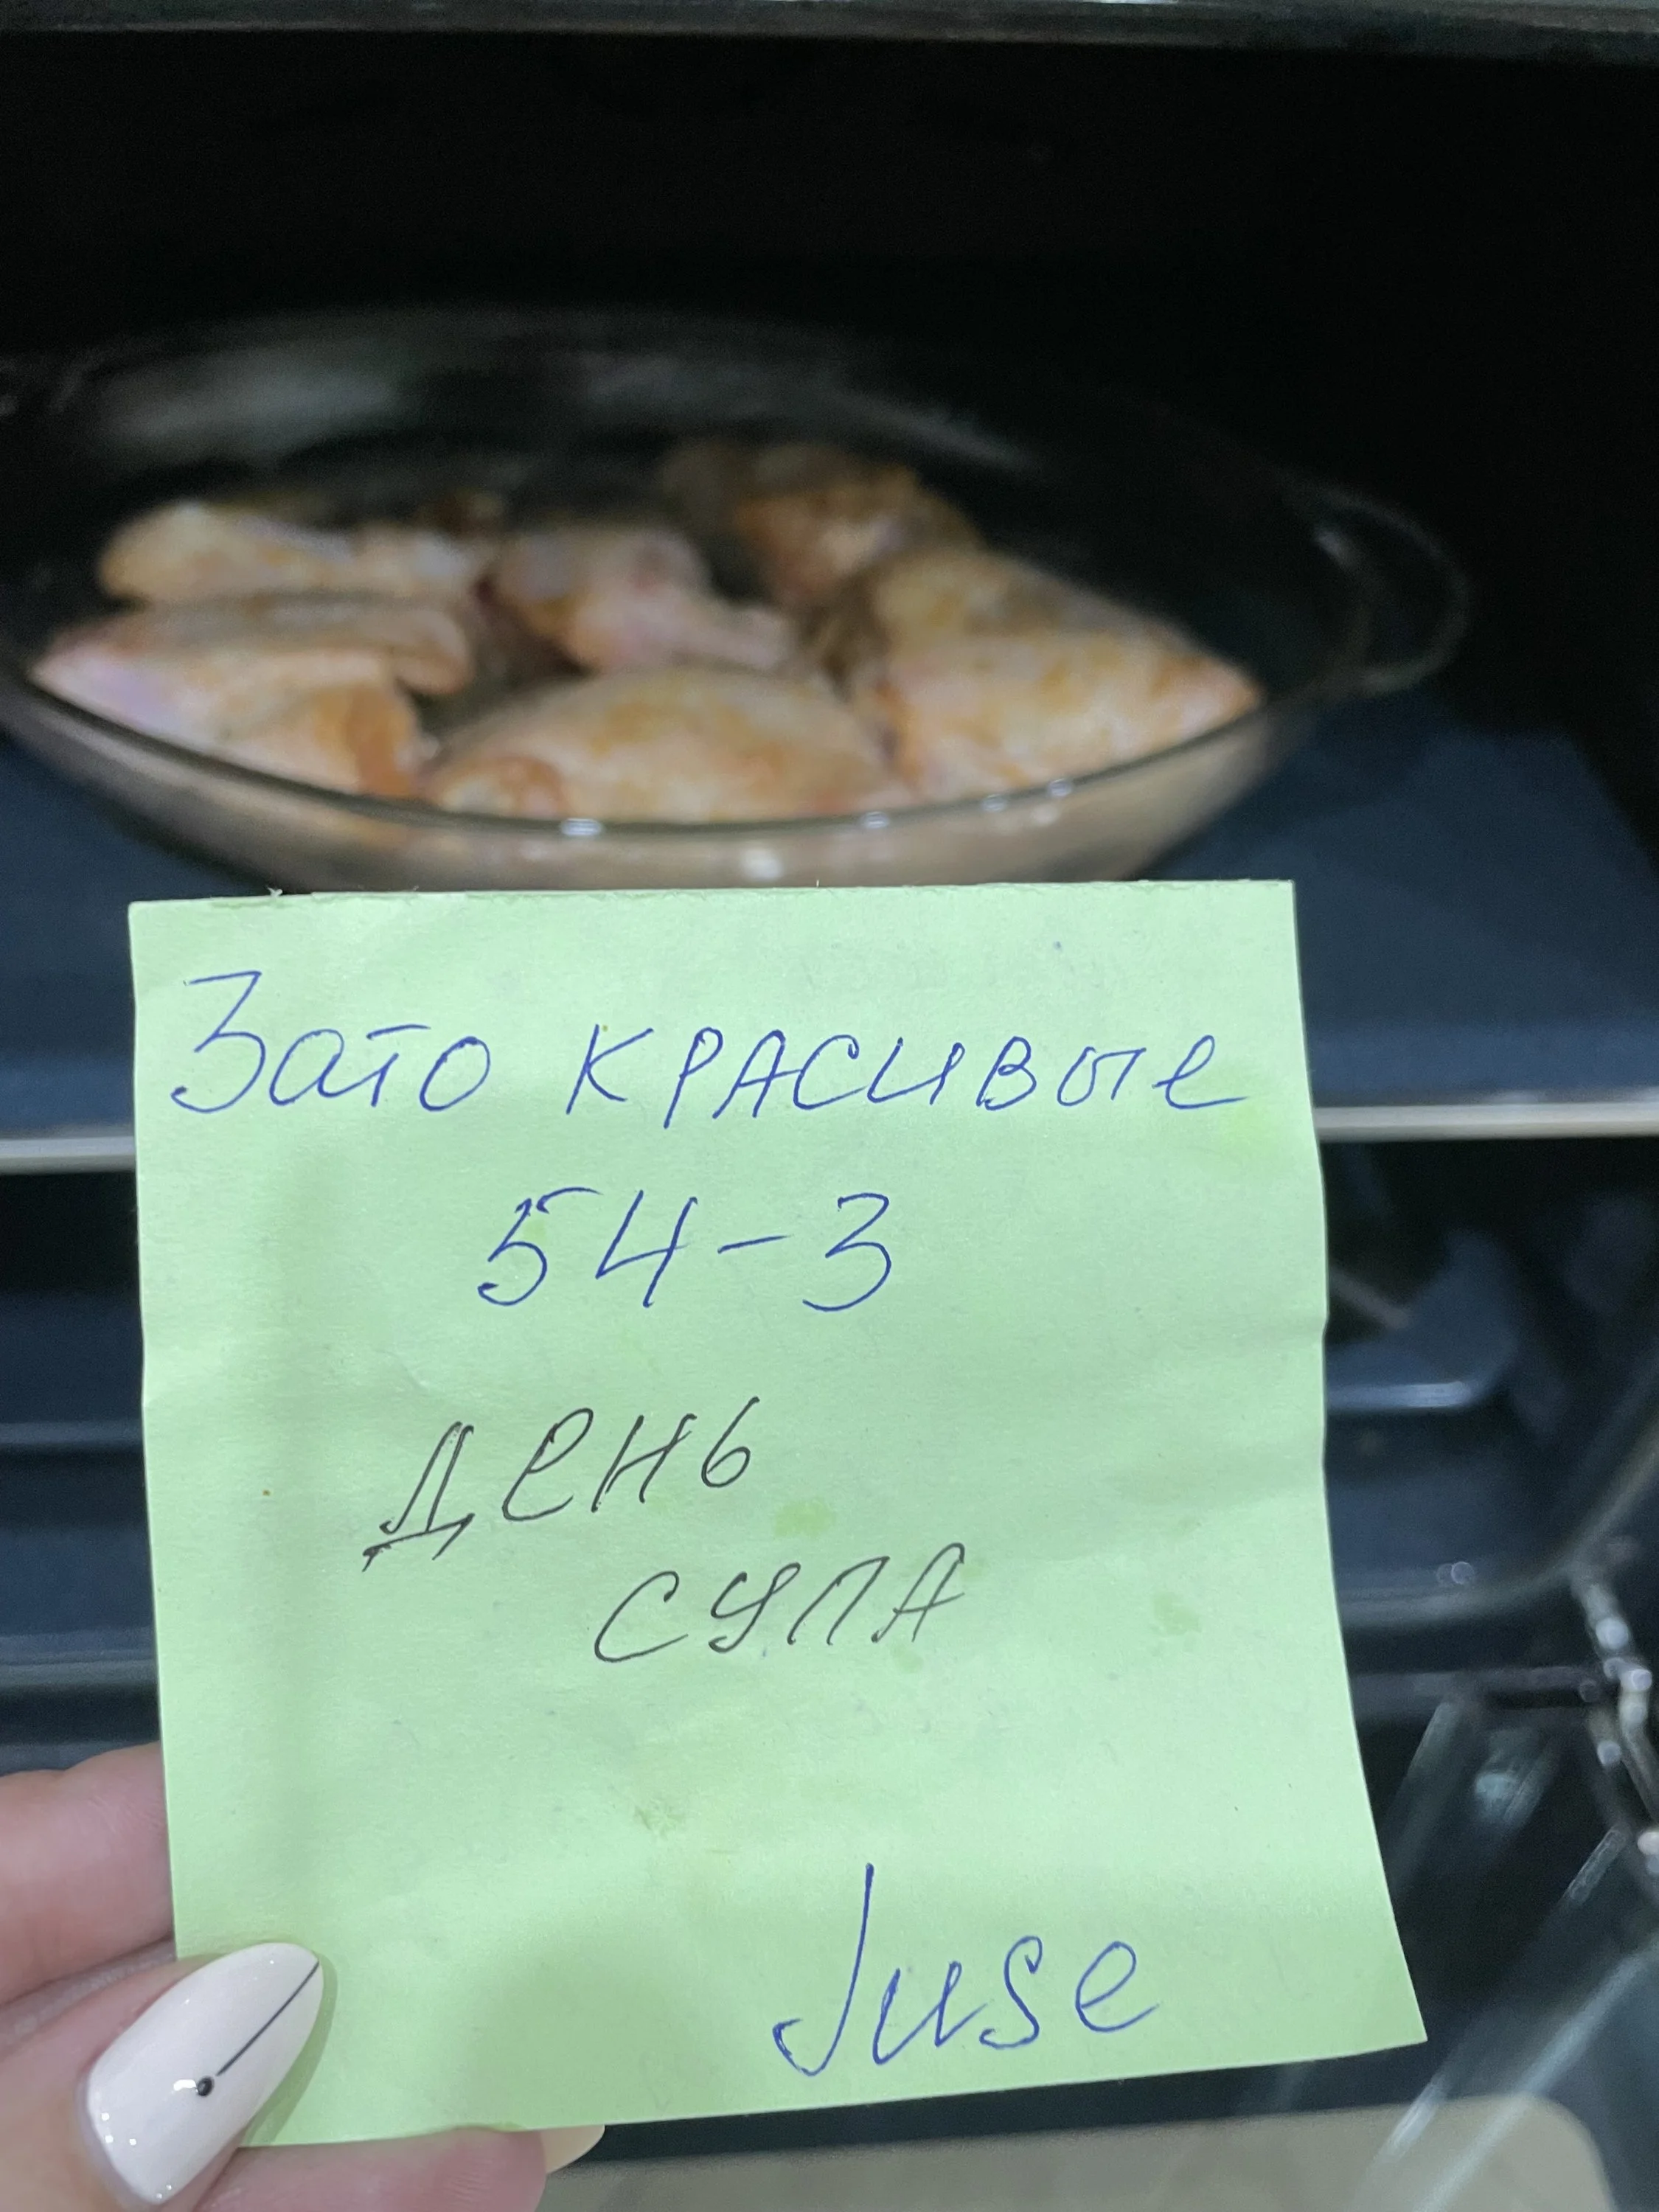 Зато красивые
54-3
День
супа
Juse